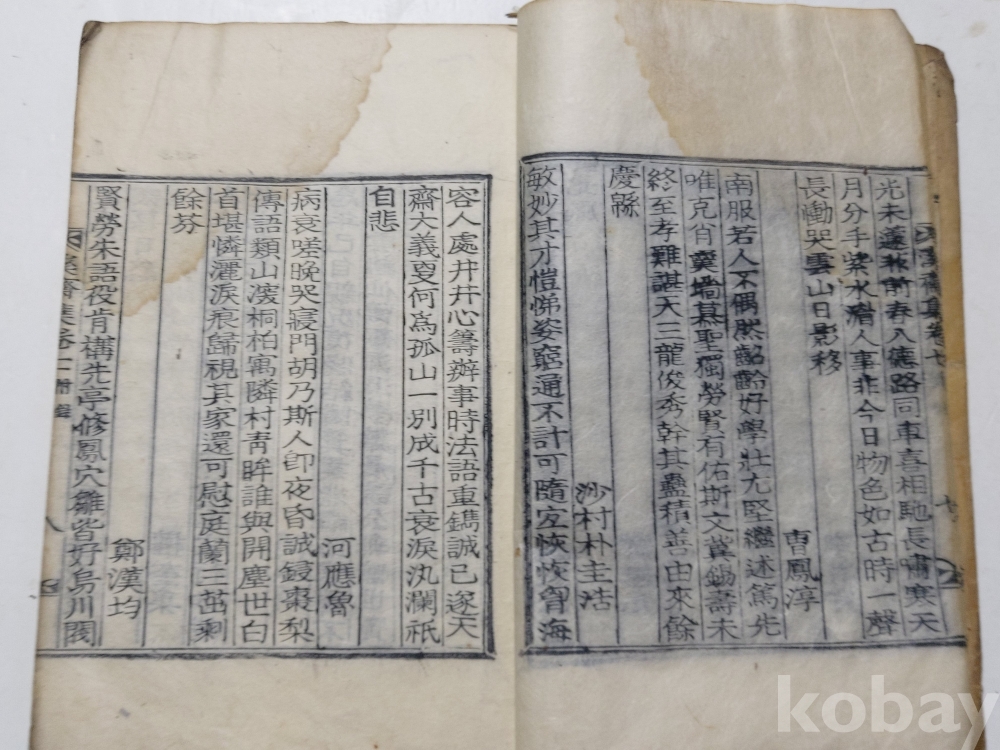 光未遂非前春入德路同車喜相馳長嘯寒天
月分手紫水濱人事非今日物色如古時一聲
長慟哭雲山日影移
曺鳳淳
南服若人不偶然齠齡好學壯尤堅繼述篤先
唯克肖羹墻慕聖獨勞賢有佑斯文冀錫壽未
終至孝難諶天三龍俊秀幹其蠱積善由來餘
慶緜
沙村朴主浩
敏妙其才愷悌姿窮通不計可隨宜恢恢胷海
容人處井井心籌辦事時法語重鐫誠已邃天
齋大義夏何爲孤山一別成千古衰淚汍瀾祇
自悲
河應魯
病衰嗟晚哭寢門胡乃斯人卽夜昏誠錽棗梨
傳語類山濱桐柏寓隣村靑眸誰與開塵世白
首堪憐灑淚痕歸視其家還可慰庭蘭三茁剩
餘芬
鄭漢均
賢勞朱語役肯構先亭修鳳穴雛皆好烏川閥
八
kobay